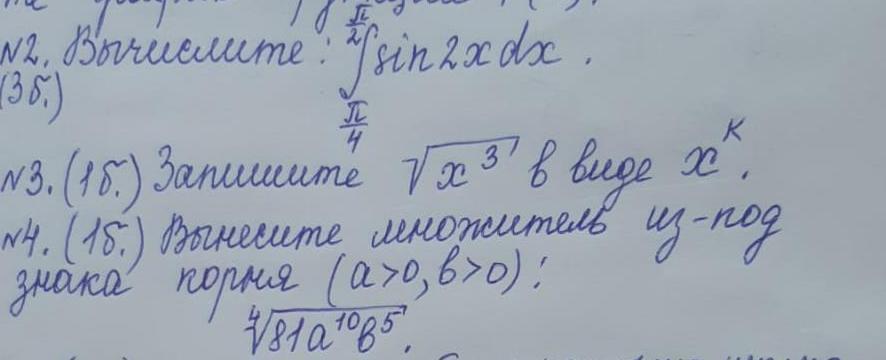 №2. Вычислите: ∫_{π/4}^{π/2} sin2xdx.
(3б.)
№3. (1б.) Запишите √x³ в виде x^к.
№4. (1б.) Вынесите множитель из-под
знака корня (a>0, b>0):
⁴√81a¹⁰b⁵.